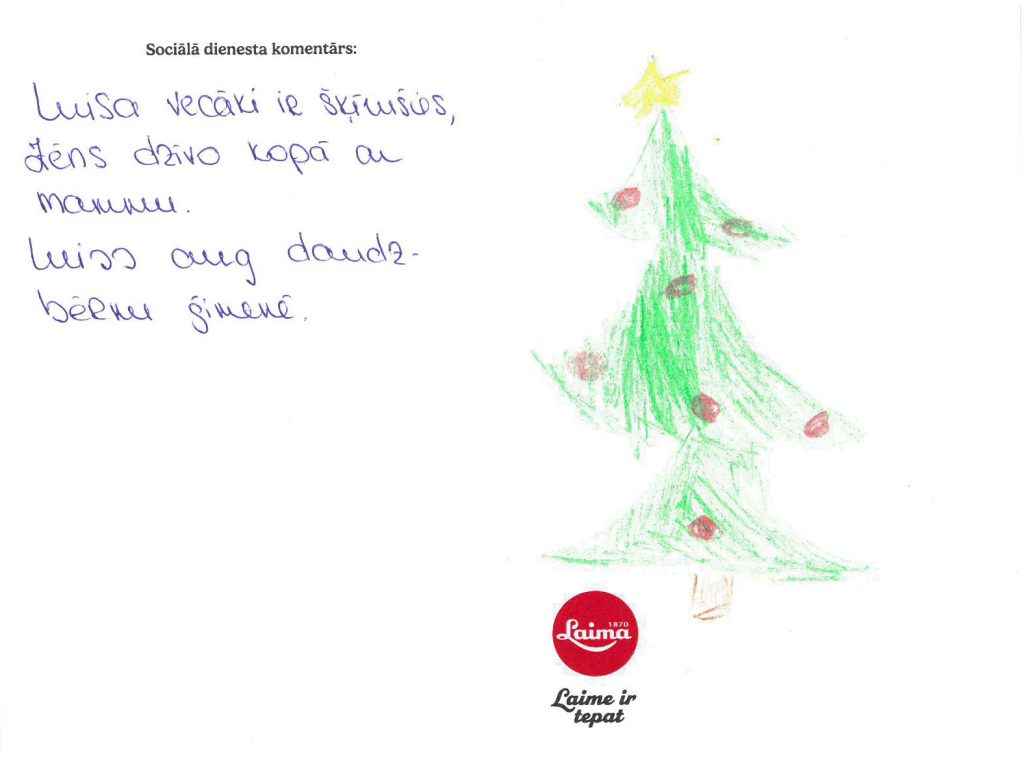 Sociālā dienesta komentārs:
Luisa vecāki ir šķīrušies,
Zēns dzīvo kopā ar
mammu.
Luiss aug daudz-
bērnu ģimenē.
1870
Laima
Laime ir
tepat